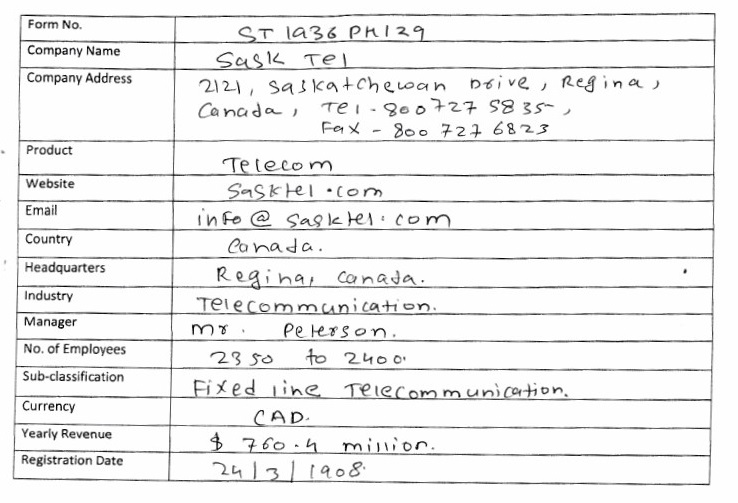 Form No. ST 1936 PH129
Company Name Sask Tel
Company Address 2121, Saskatchewan Drive, Regina,
Canada, Tel - 800 727 5835,
Fax - 800 727 6823
Product Telecom
Website Sasktel.com
Email info@sasktel.com
Country Canada.
Headquarters Regina, Canada.
Industry Telecommunication.
Manager Mr. Peterson.
No. of Employees 2350 to 2400.
Sub-classification Fixed line Telecommunication.
Currency CAD.
Yearly Revenue $ 760.4 million.
Registration Date 24/3/1908.